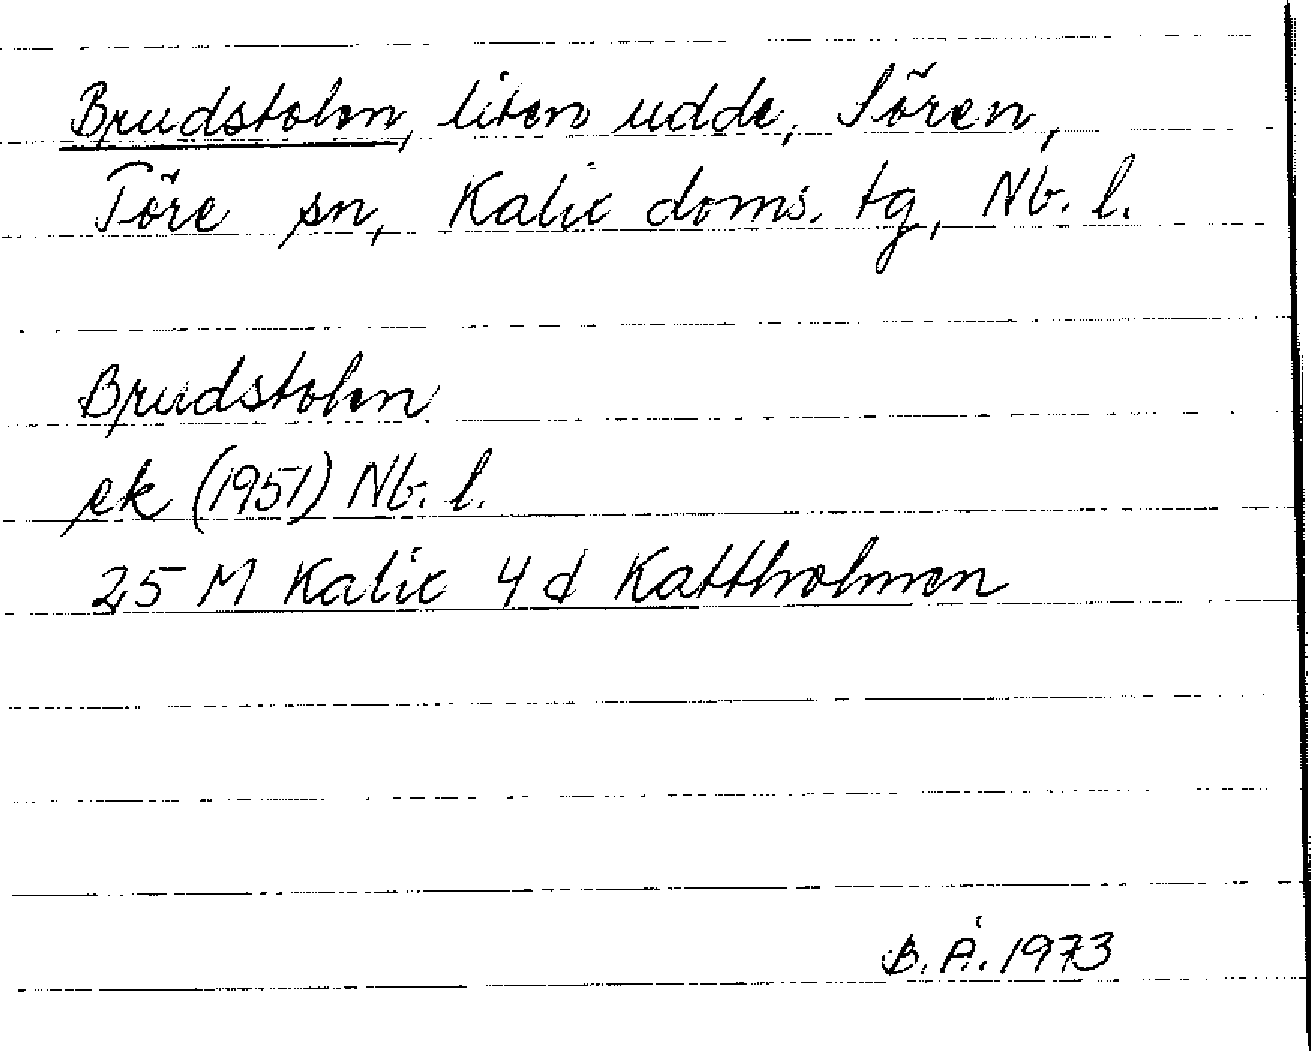 Brudstolen, liten udde, Sören,
Töre sn, Kalix doms. tg, Nb. l.
Brudstolen
ek (1951) Nb. l.
25 M Kalix 4 d Kattholmen
B. Å. 1973